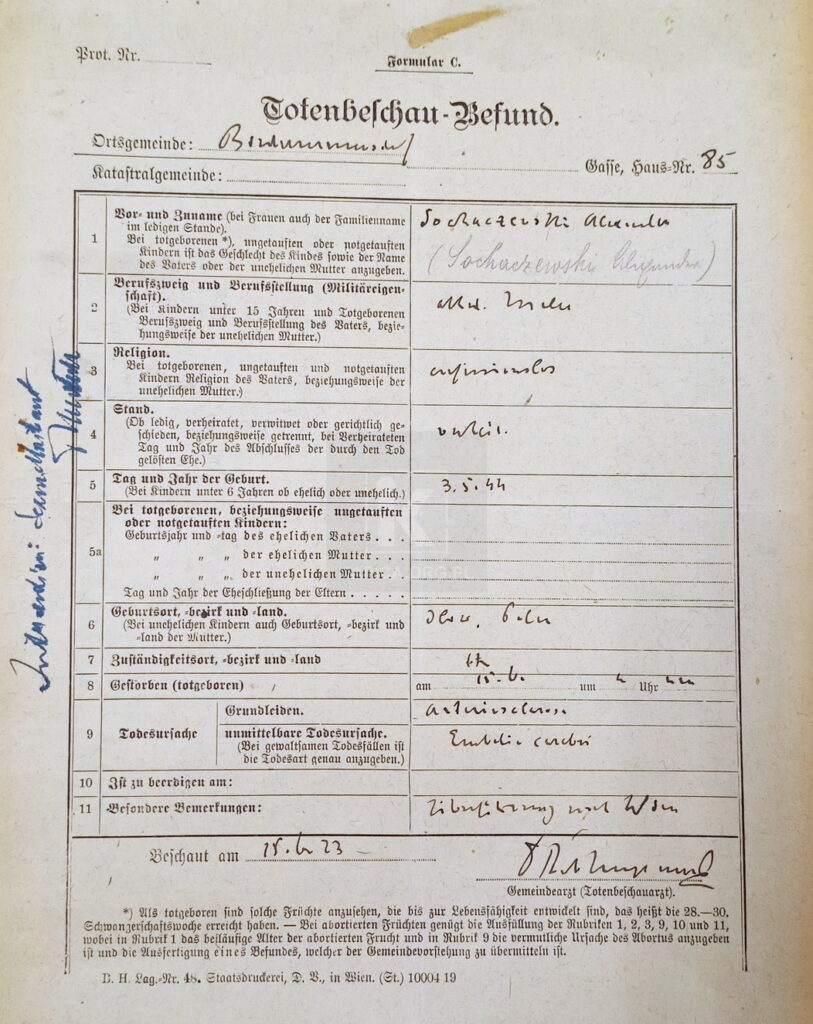 Prot. Nr.
Formular C.
Totenbeschau-Befund.
Ortsgemeinde:
Gasse, Haus-Nr. 85
Katastralgemeinde:
1
Vor- und Zuname (bei Frauen auch der Familienname
im ledigen Stande).
Bei totgeborenen *), ungetauften oder notgetauften
Kindern ist das Geschlecht des Kindes sowie der Name
des Vaters oder der unehelichen Mutter anzugeben.
Sochaczewski Alexander
(Sochaczewski Alexander)
2
Berufszweig und Berufsstellung (Militäreigen-
schaft).
(Bei Kindern unter 15 Jahren und Totgeborenen
Berufszweig und Berufsstellung des Vaters, bezie-
hungsweise der unehelichen Mutter.)
akad. Maler
3
Religion.
Bei totgeborenen, ungetauften und notgetauften
Kindern Religion des Vaters, beziehungsweise der
unehelichen Mutter.)
confessionslos
4
Stand.
(Ob ledig, verheiratet, verwitwet oder gerichtlich ge-
schieden, beziehungsweise getrennt, bei Verheirateten
Tag und Jahr des Abschlusses der durch den Tod
gelösten Ehe.)
5
Tag und Jahr der Geburt.
(Bei Kindern unter 6 Jahren ob ehelich oder unehelich.)
3.5.44
5a
Bei totgeborenen, beziehungsweise ungetauften
oder notgetauften Kindern:
Geburtsjahr und -tag des ehelichen Vaters . . .
„ „ „ der ehelichen Mutter . . .
„ „ „ der unehelichen Mutter . .
Tag und Jahr der Eheschließung der Eltern . . . . .
6
Geburtsort, -bezirk und -land.
(Bei unehelichen Kindern auch Geburtsort, -bezirk und
-land der Mutter.)
7
Zuständigkeitsort, -bezirk und -land
8
Gestorben (totgeboren)
am 15.6. um Uhr
9
Todesursache
Grundleiden.
Arteriosclerose
unmittelbare Todesursache.
(Bei gewaltsamen Todesfällen ist
die Todesart genau anzugeben.)
Embolia cerebri
10
Ist zu beerdigen am:
11
Besondere Bemerkungen:
Überführung nach Wien
Beschaut am 15.6.23
Gemeindearzt (Totenbeschauarzt).
*) Als totgeboren sind solche Früchte anzusehen, die bis zur Lebensfähigkeit entwickelt sind, das heißt die 28.—30.
Schwangerschaftswoche erreicht haben. — Bei abortierten Früchten genügt die Ausfüllung der Rubriken 1, 2, 3, 9, 10 und 11,
wobei in Rubrik 1 das beiläufige Alter der abortierten Frucht und in Rubrik 9 die vermutliche Ursache des Abortus anzugeben
ist und die Ausfertigung eines Befundes, welcher der Gemeindevorstehung zu übermitteln ist.
B. H. Lag.-Nr. 48. Staatsdruckerei, D. V., in Wien. (St.) 10004 19